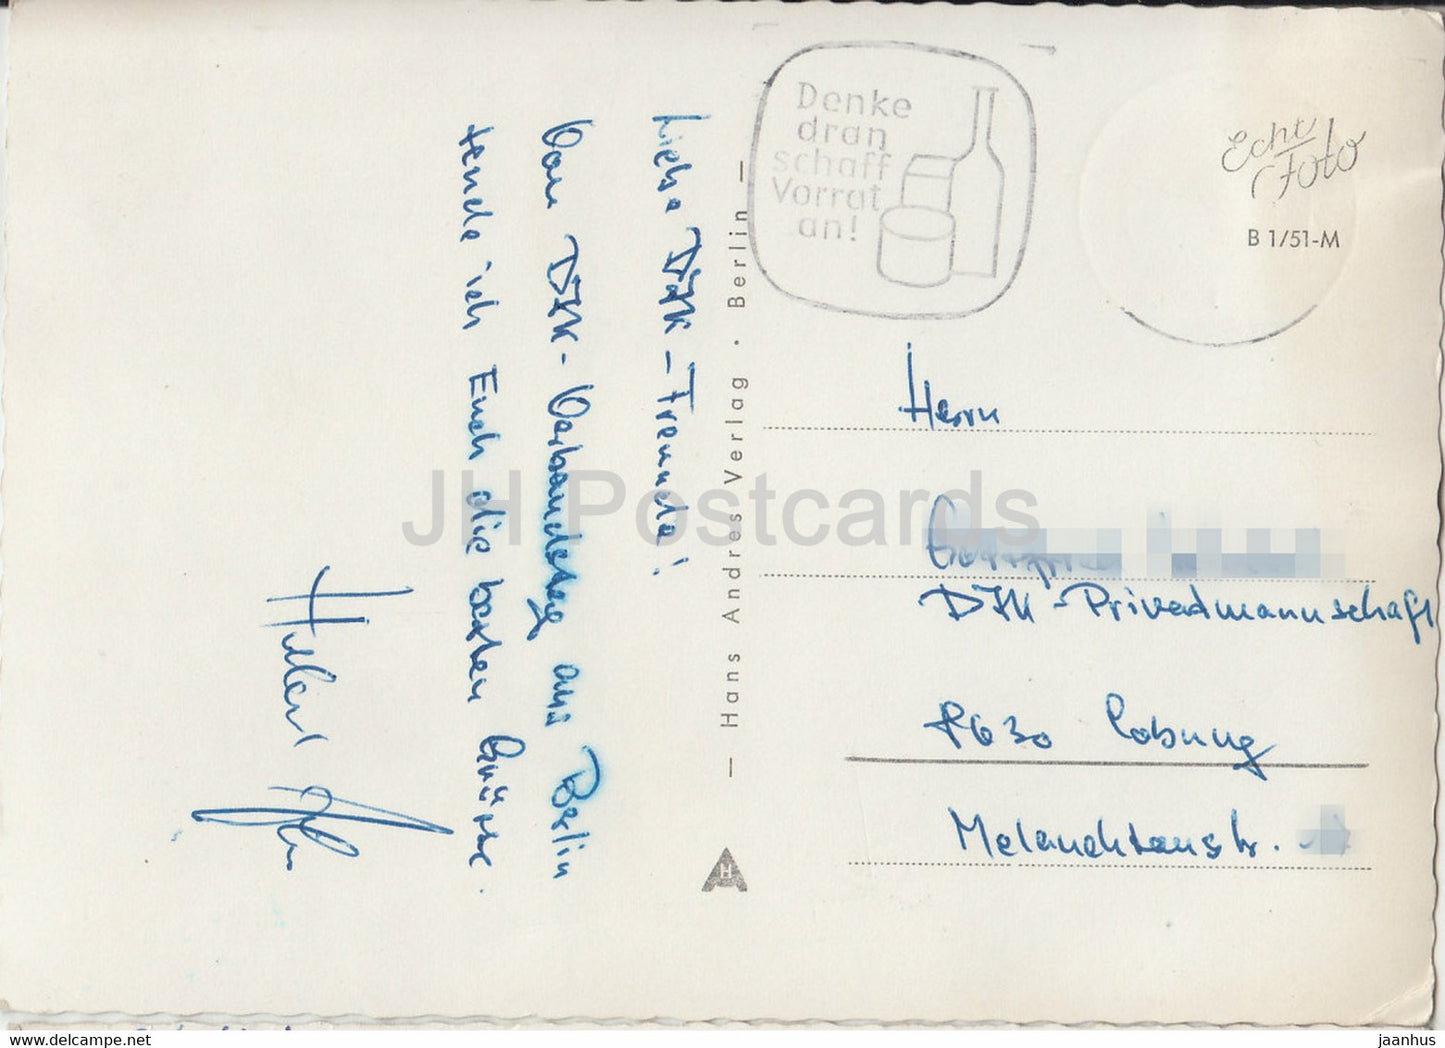 Denke
dran
schaff
Vorrat
an!
Echt
Foto
B 1/51-M
Liebe DJK-Freunde!
Vom DJK-Verbandstag aus Berlin
sende ich Euch die besten Grüsse.
— Hans Andres Verlag · Berlin —
H
Herrn
DJK-Privatmannschaft
8630 Coburg
Melanchtonstr.
JH Postcards
www.delcampe.net
jaanhus